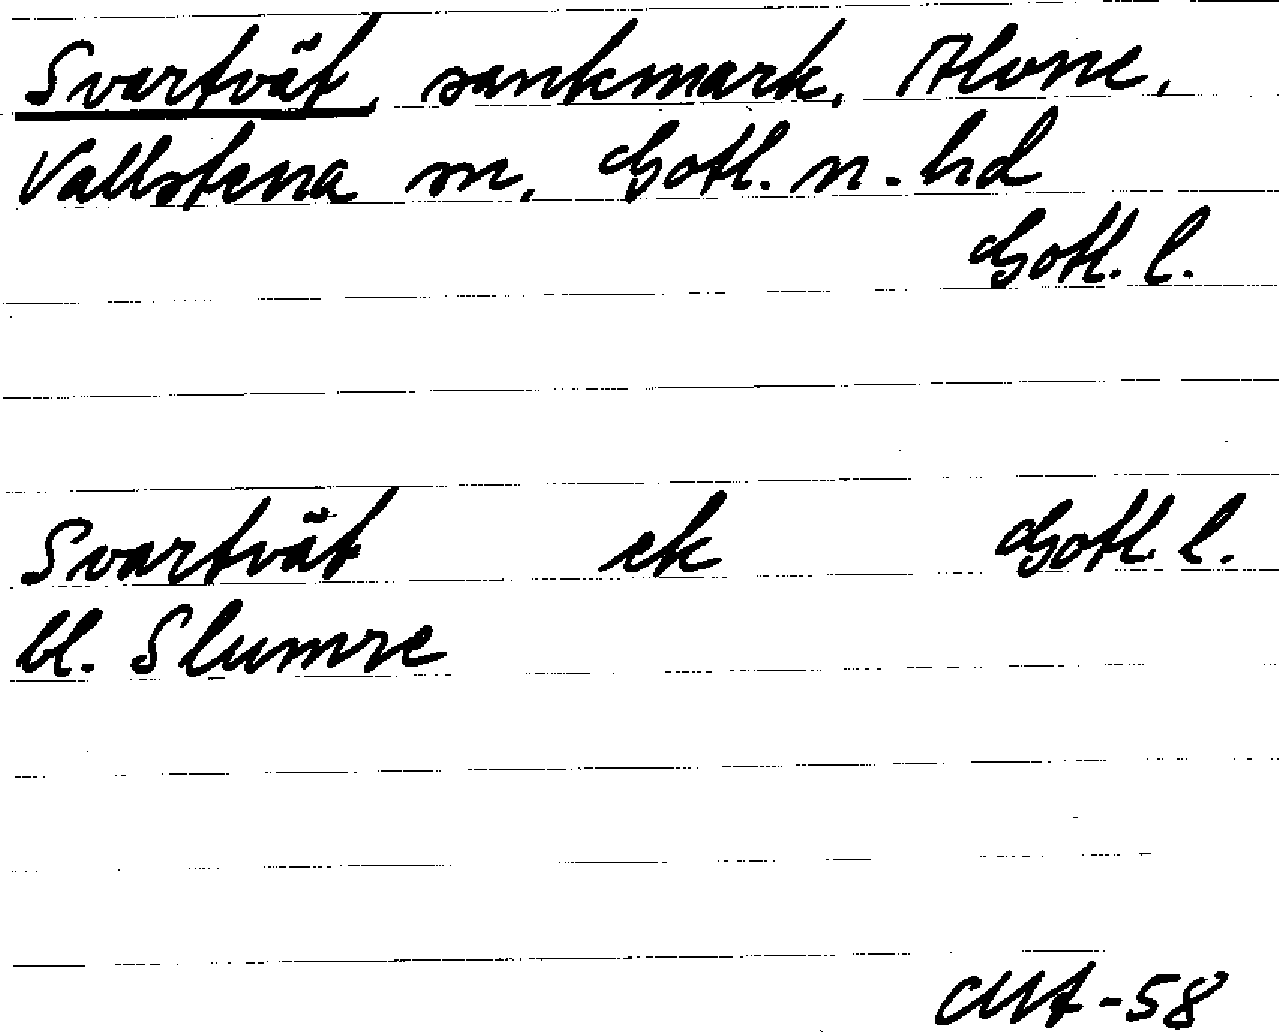 Svartvät, sankmark, Alvne,
Vallstena sn, Gotl. n. hd
Gotl. l.
Svartvät ek Gotl. l.
bl. Slumre
-58